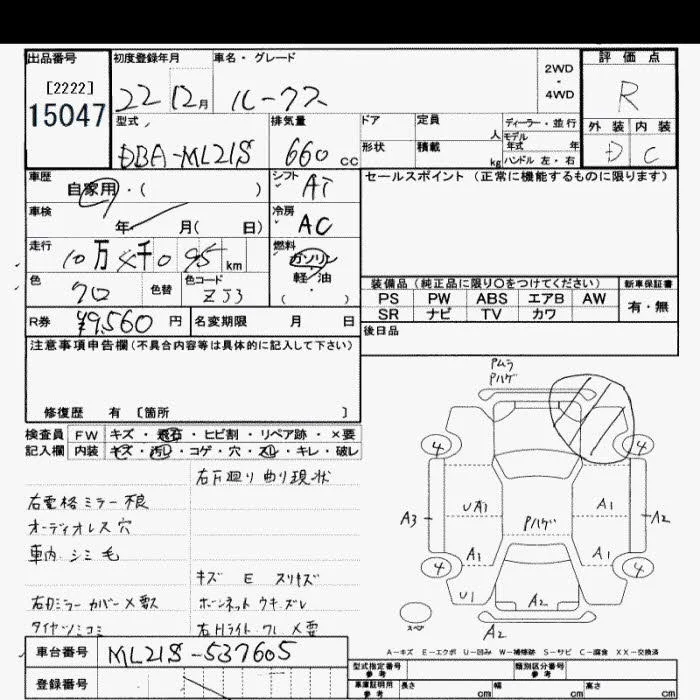 出品番号
[2222]
15047
初度登録年月
22 12月
車名・グレード
ルークス
2WD
・
4WD
評価点
R
外装 内装
D C
型式
DBA-ML21S
排気量
660 cc
ドア
形状
定員 人
積載 kg
ディーラー・並行
モデル年式 年
ハンドル 左・右
車歴
自家用・( )
シフト
AT
車検
年 月( 日)
冷房
AC
走行
10万4千095 km
燃料
ガソリン
軽・油
・( )
色
クロ
色替
色コード
ZJ3
R券 ¥9,560 円
名変期限 月 日
セールスポイント(正常に機能するものに限ります)
装備品(純正品に限り○をつけてください)
PS PW ABS エアB AW
SR ナビ TV カワ
新車保証書
有・無
後日品
注意事項申告欄(不具合内容等は具体的に記入して下さい)
修復歴 有 〔箇所 〕
検査員
記入欄
FW キズ・飛石・ヒビ割・リペア跡・×要
内装 キズ・汚レ・コゲ・穴・スレ・キレ・破レ
右下廻り曲り現状
右電格ミラー不良
オーディオレス穴
車内シミ毛
キズ E スリキズ
右ドミラーカバー×要ス
ボーンネットウキズレ
タイヤツミコミ
右Hライトワレ×要
Pムラ
Pハゲ
4
4
UA1
A1
A3
Pハゲ
A2
A1
A1
4
4
U1
A2
スペア
A2
A-キズ E-エクボ U-凹み W-補修跡 S-サビ C-腐食 XX-交換済
車台番号 ML21S-537605
登録番号
型式指定番号
参考
類別区分番号
参考
車庫証明用
参考
長さ cm
幅 cm
高さ cm